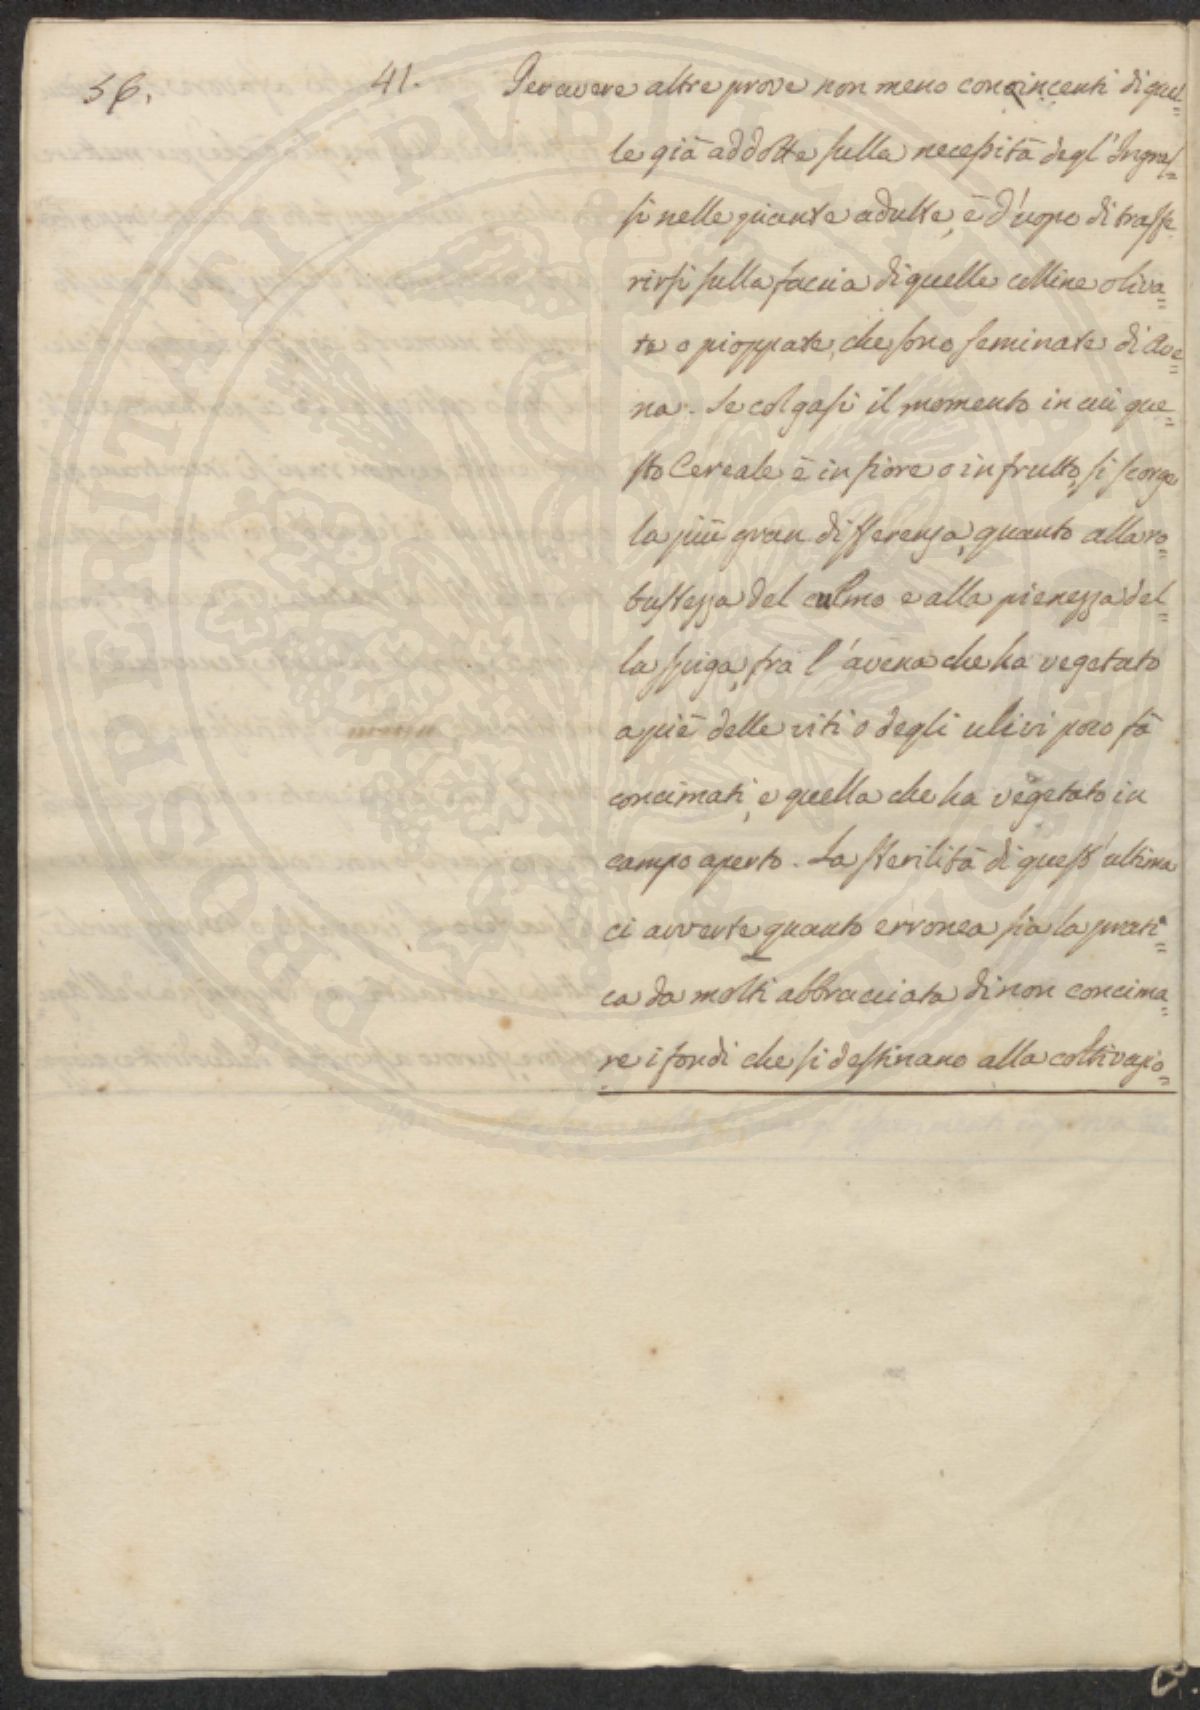 56.
41. Per avere altre prove non meno convincenti di quel=
le già addotte sulla necessità degl'Ingras=
si nelle piante adulte, è d'uopo di trasfe=
rirsi sulla faccia di quelle colline oliva=
te o pioppate, che sono seminate di Ave=
na. Se colgasi il momento in cui que=
sto Cereale è in fiore o in frutto, si scorge
la più gran differenza, quanto alla ro=
bustezza del culmo e alla pienezza del=
la spiga, fra l'avena che ha vegetato
a piè delle viti o degli ulivi poco fà
concimati, e quella che ha vegetato in
campo aperto. La sterilità di quest'ultima
ci avverte quanto erronea sia la prati=
ca da molti abbracciata di non concima=
re i fondi che si destinano alla coltivazio=
PROSPERITATI PUBLICAE